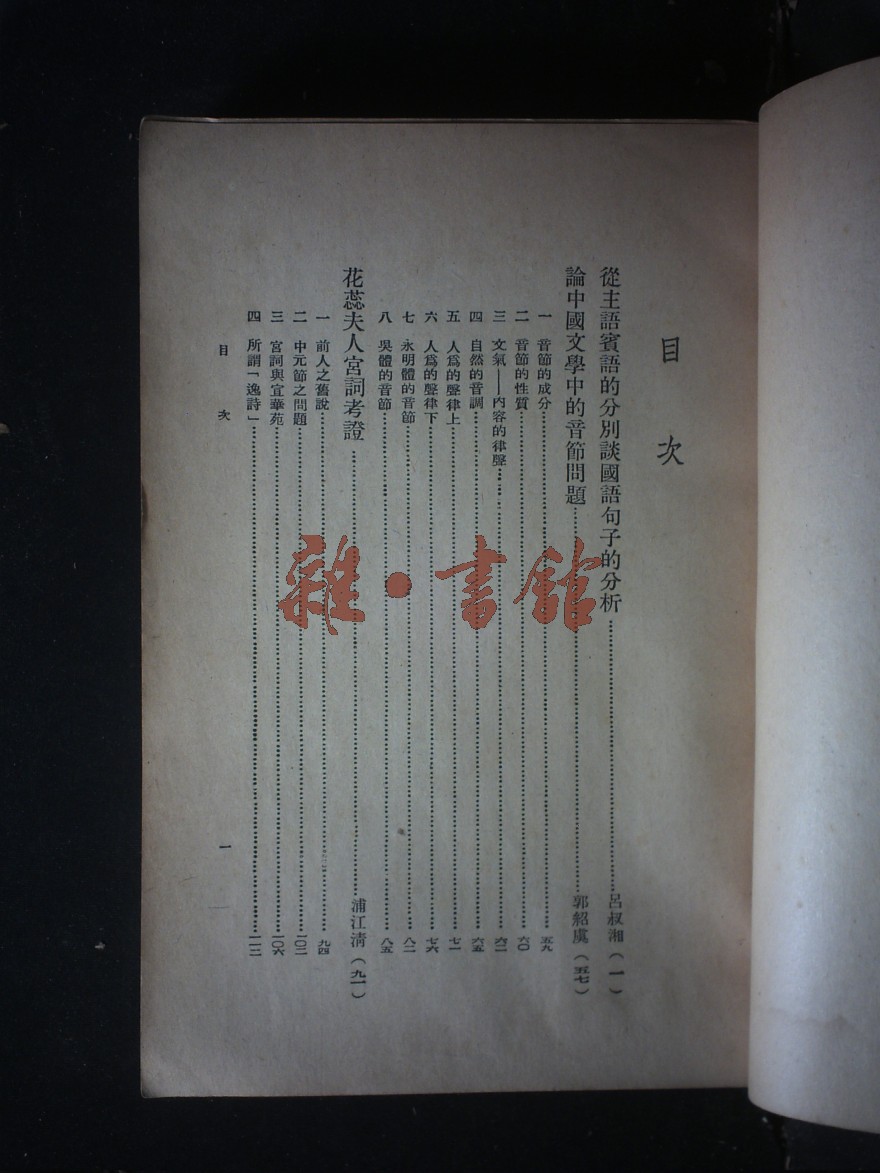 目次
從主語賓語的分別談國語句子的分析……呂叔湘（一）
論中國文學中的音節問題……郭紹虞（五七）
一 音節的成分……五九
二 音節的性質……六〇
三 文氣——內容的律聲……六二
四 自然的音調……六五
五 人爲的聲律上……七一
六 人爲的聲律下……七六
七 永明體的音節……八二
八 吳體的音節……八五
花蕊夫人宮詞考證……浦江清（九一）
一 前人之舊說……九四
二 中元節之問題……一〇二
三 宮詞與宣華苑……一〇六
四 所謂「逸詩」……一一二
目次 一
雜·書館